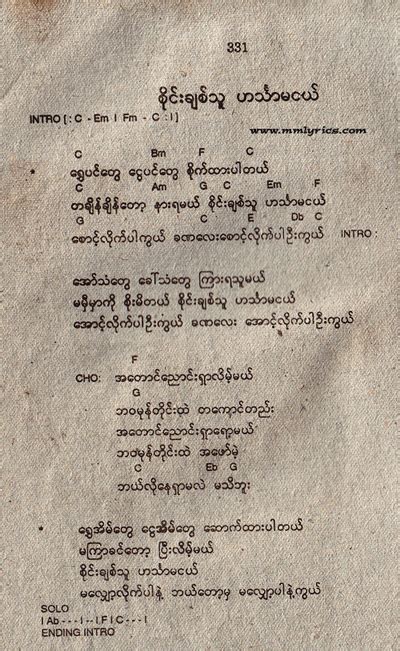 331
စိုင်းချစ်သူ ဟင်္သာမငယ်
INTRO [ : C - Em | Fm - C : | ]
www.mmlyrics.com
C Bm F C
* ရွှေပင်တွေ ငွေပင်တွေ စိုက်ထားပါတယ်
C Am G C Em F
တချိန်ချိန်တော့ နားရမယ် စိုင်းချစ်သူ ဟင်္သာမငယ်
G C E Db C
စောင့်လိုက်ပါကွယ် ခဏလေးစောင့်လိုက်ပါဦးကွယ် INTRO :
အော်သံတွေ ခေါ်သံတွေ ကြားရသူမယ်
မမှီမှာကို စိုးမိတယ် စိုင်းချစ်သူ ဟင်္သာမငယ်
အောင့်လိုက်ပါဦးကွယ် ခဏလေး အောင့်လိုက်ပါဦးကွယ်
F
CHO: အတောင်ညောင်းရှာလိမ့်မယ်
G
ဘဝမုန်တိုင်းထဲ တကောင်တည်း
အတောင်ညောင်းရှာရော့မယ်
ဘဝမုန်တိုင်းထဲ အဖော်မဲ့
C Eb G
ဘယ်လိုနေရှာမလဲ မသိဘူး
* ရွှေအိမ်တွေ ငွေအိမ်တွေ ဆောက်ထားပါတယ်
မကြာခင်တော့ ပြီးလိမ့်မယ်
စိုင်းချစ်သူ ဟင်္သာမငယ်
မလျှော့လိုက်ပါနဲ့ ဘယ်တော့မှ မလျှော့ပါနဲ့ကွယ်
SOLO
| Ab - - - | - - | F | C - - - |
ENDING INTRO